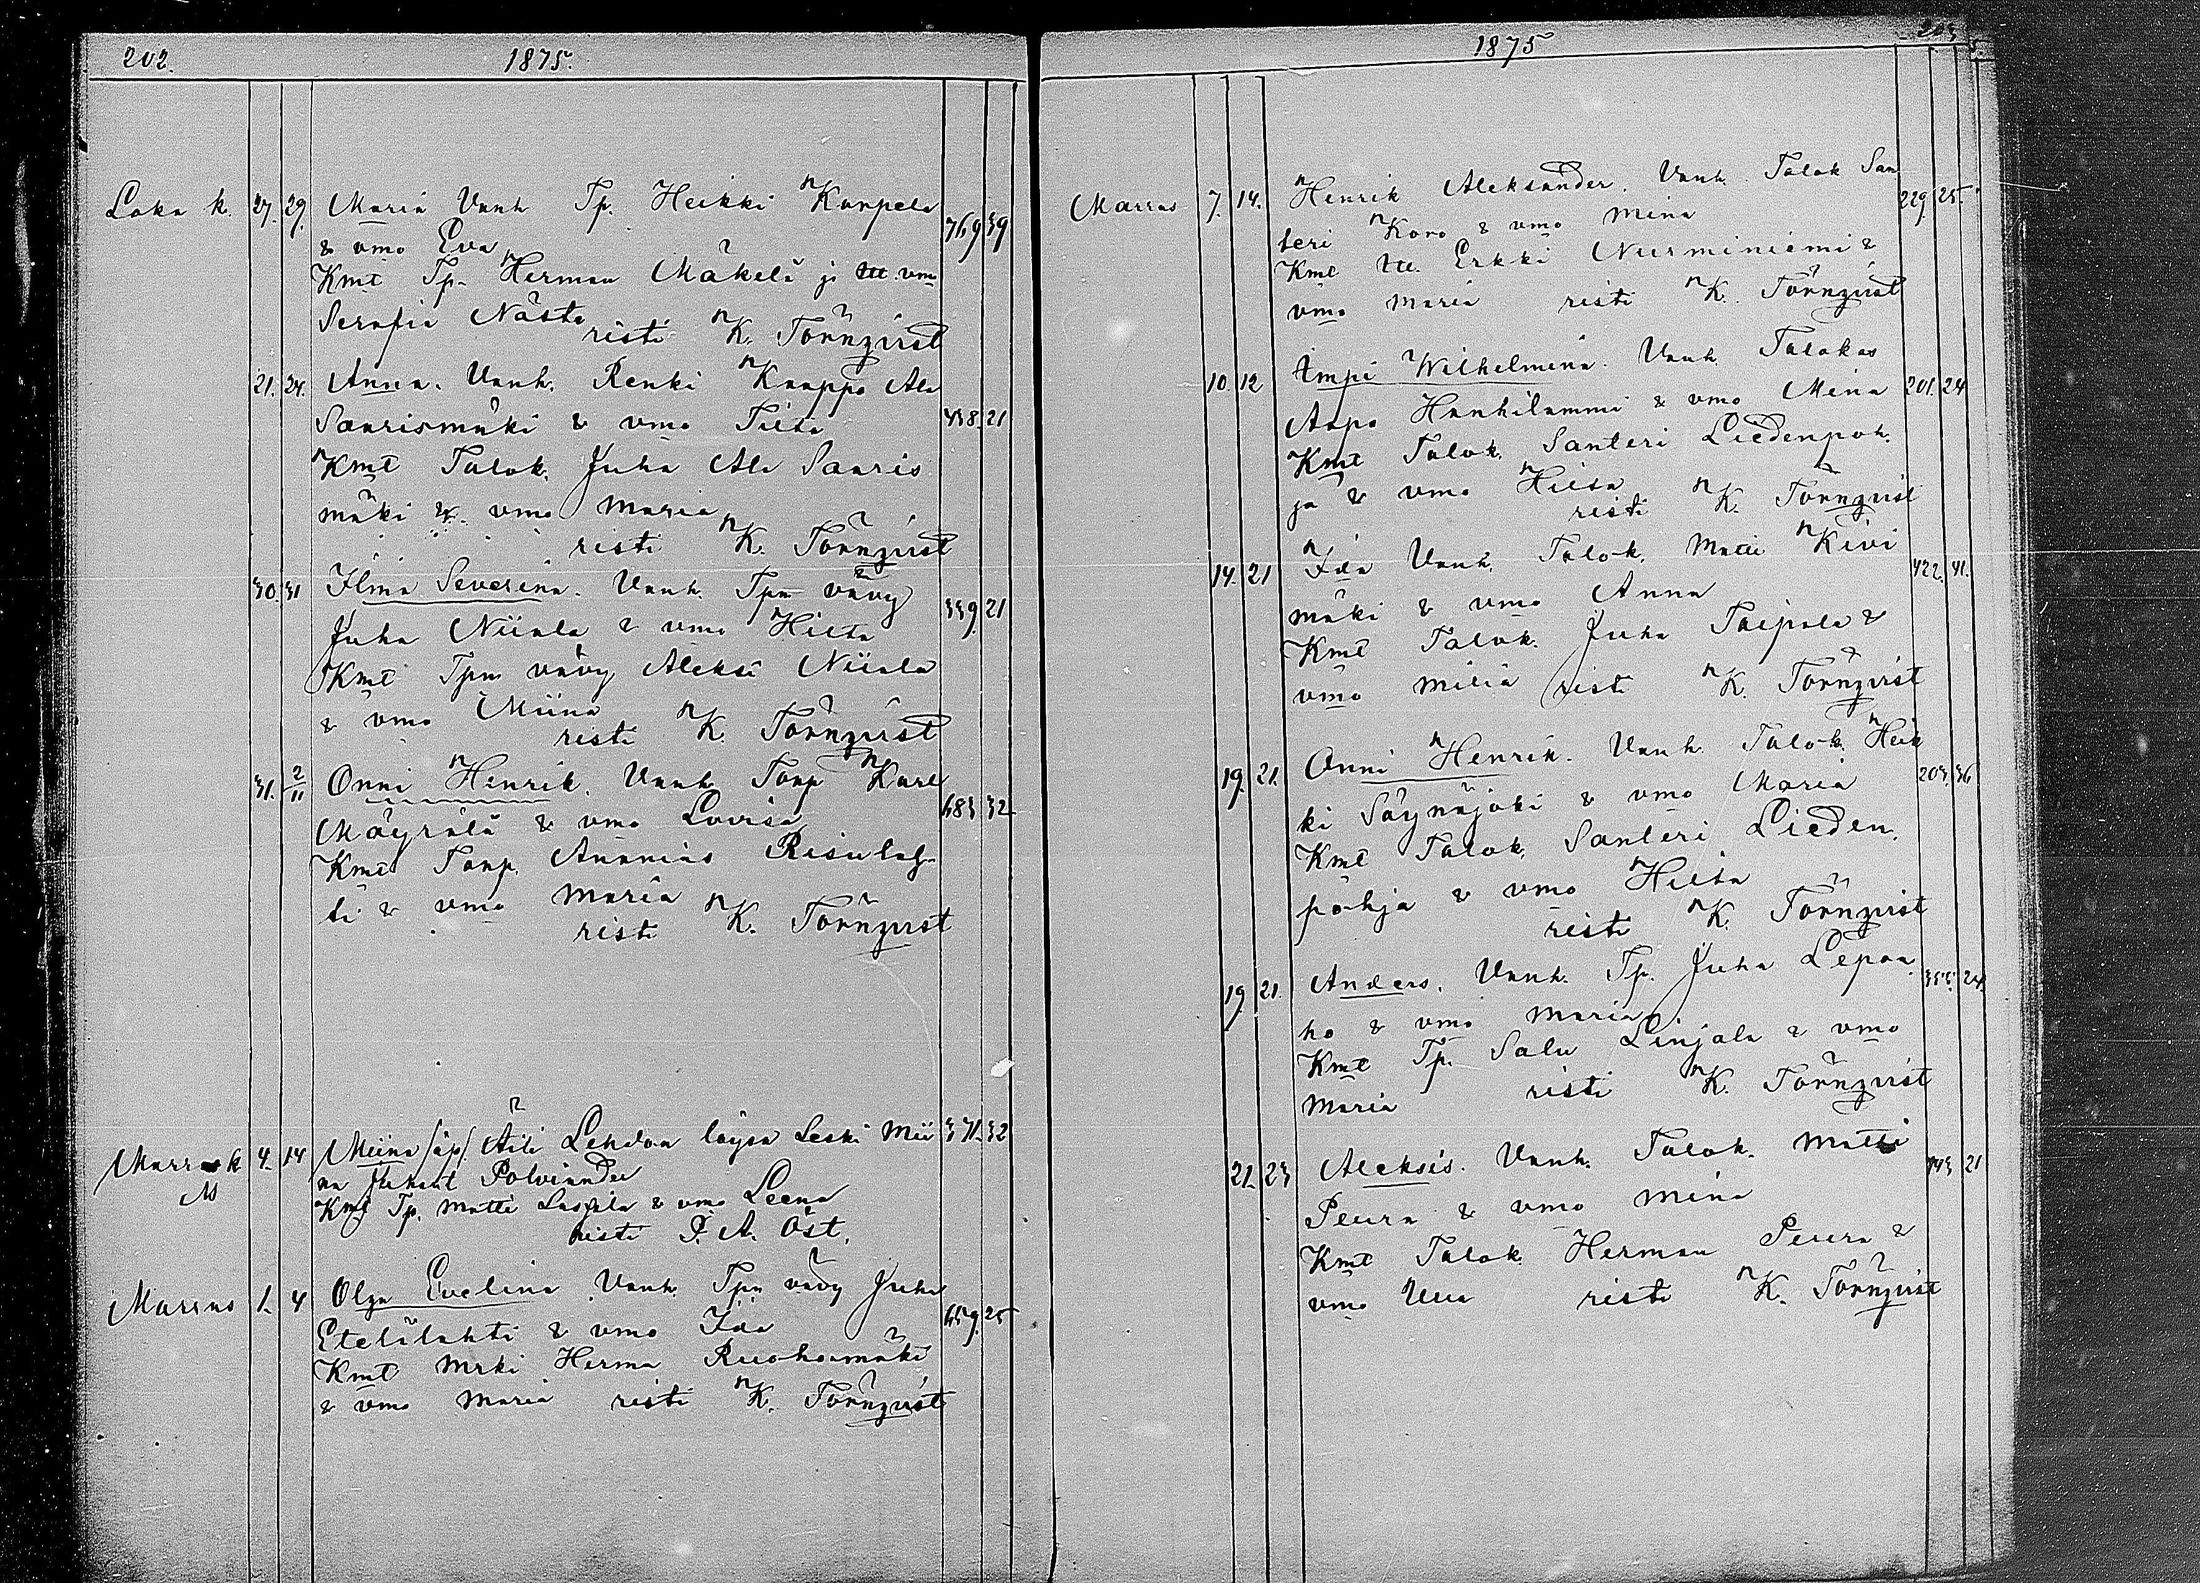 202. 1875.
Loka k. 27. 29. Maria Vanh Tp. Heikki Karpela 769 39
& vmo Eva
Kmt Tp. Herman Mäkelä ja vmo
Serafia Nästa
risti K. Törnqvist
21. 24. Anna. Vanh. Renki Kaappo Ala 438. 21
Saarismäki & vmo Tiita
Kmt Talok. Juha Ala Saaris
mäki & vmo Maria
risti K. Törnqvist
30. 31 Ilma Severina. Vanh. Tpn vävy 339. 21
Juha Niinla & vmo Hilta
Kmt Tpn vävy Aleksi Niinla
& vmo Miina
risti K. Törnqvist
31. 2/11 Onni Henrik. Vanh Torp Karl 683 32
Mäyrälä & vmo Lovisa
Kmt Torp. Ananias Risulah
ti & vmo Maria
risti K. Törnqvist
Marras k 4. 14 Miina /äp/ Äiti Lehdon löysa Leski Mii 371. 32
na Juhant Polvinder
Kmt Tp. Matti Lassila & vmo Leena
risti I. A. Öst.
Marras 1. 4 Olga Evelina Vanh. Tpn vävy Juha 659. 25
Etelälahti & vmo Ida
Kmt Mrki Herma Ruohomäki
& vmo Maria risti K. Törnqvist
1875 203
Marras 7. 14. Henrik Aleksander. Vanh. Talok San 229. 25.
teri Koro & vmo Mina
Kmt Itl. Erkki Nurminiemi &
vmo Maria risti K. Törnqvist
10. 12 Impi Wilhelmina. Vanh. Talokas 201. 24
Aapo Hanhilammi & vmo Miina
Kmt Talok. Santeri Liedenpoh
ja & vmo Hilta
risti K. Törnqvist
14. 21 Ida Vanh. Talok. Matti Kivi 422. 41.
mäki & vmo Anna
Kmt Talok. Juha Taipale &
vmo Milia risti K. Törnqvist
19. 21. Onni Henrik. Vanh. Talok. Heik 203. 36
ki Säynäjoki & vmo Maria
Kmt Talok. Santeri Lieden
pohja & vmo Hilta
risti K. Törnqvist
19. 21. Anders. Vanh. Tp. Juha Lepoa 355. 24.
ho & vmo Maria
Kmt Tp. Salu Linjala & vmo
Maria risti K. Törnqvist
21. 23 Aleksis. Vanh. Talok. Matti 143 21
Peura & vmo Mina
Kmt Talok. Herman Peura &
vmo Ulla risti K. Törnqvist